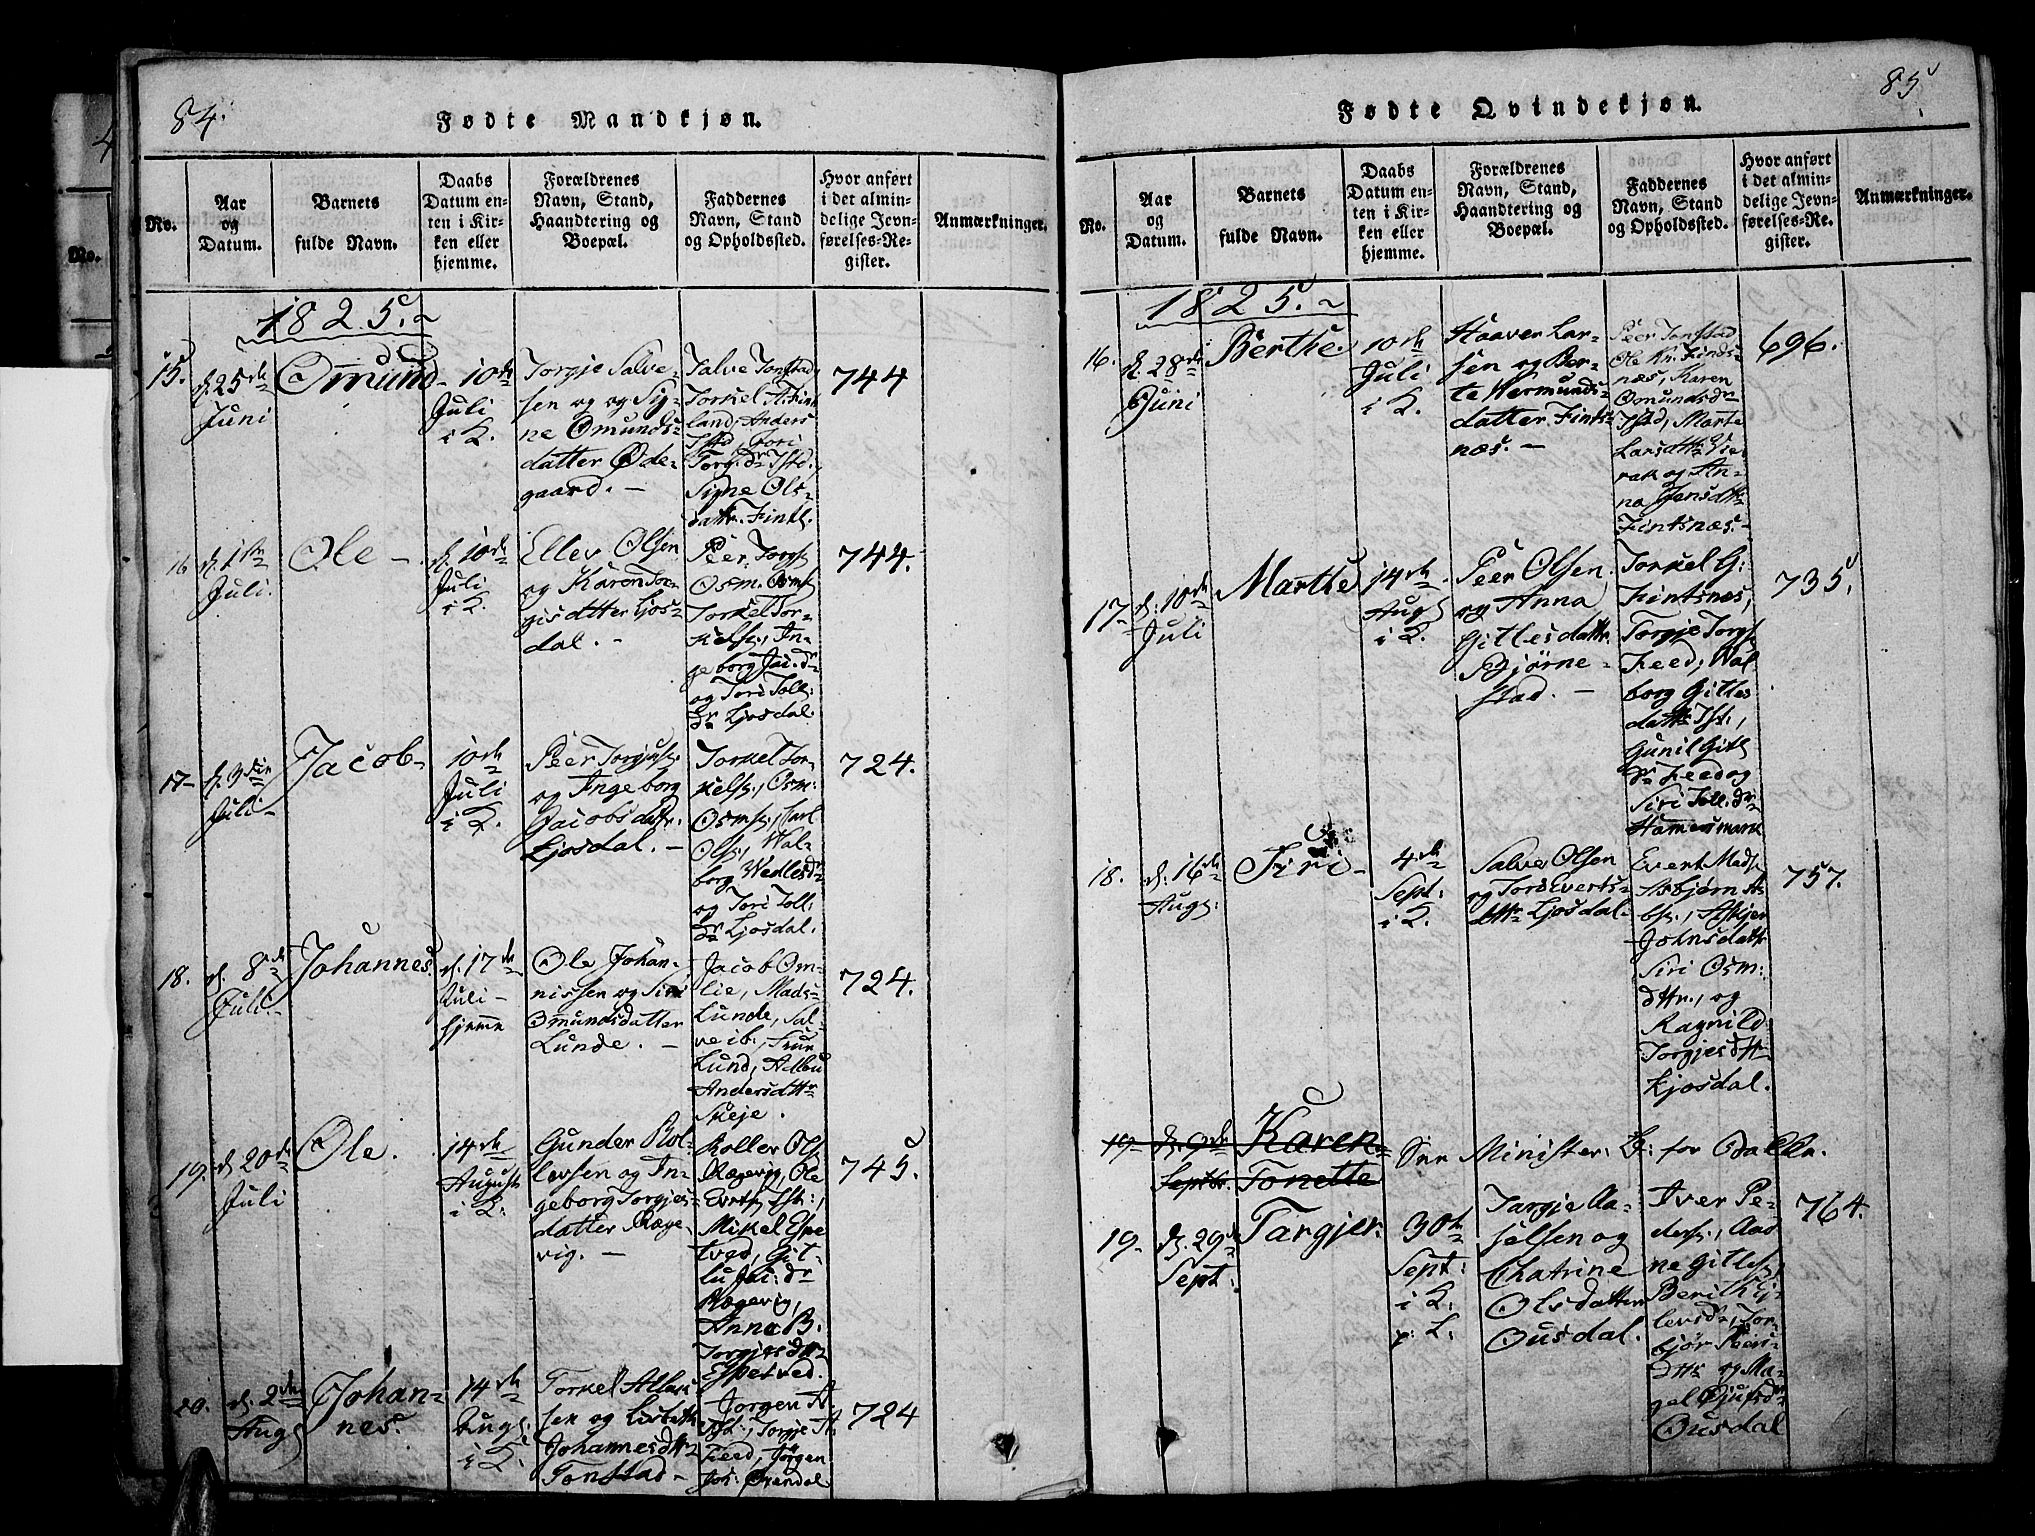 84.
Fødte Mandkjøn.
No.
Aar
og
Datum.
Barnets
fulde Navn.
Daabs
Datum en-
ten i Kir-
ken eller
hjemme.
Forældrenes
Navn, Stand,
Haandtering og
Boepæl.
Faddernes
Navn, Stand
og Opholdssted.
Hvor anført
i det almin-
delige Jevn-
førelses-Re-
gister.
Anmærkninger.
1825.
15.
d. 25de
Juni
Omund
10de
Juli
i K.
Torgje Salve-
sen og og Sig-
ne Omunds-
datter Øde-
gaard.
Salve Tonstad,
Torkel A. Fint-
land, Anders
Istd, Tori
Torg. dr Istd.,
Signe Ols-
dattr. Fintl.
744
16
d. 1ste
Juli.
Ole
d. 10de
Juli
i K.
Ellev Olsen
og Karen Tor-
gisdatter Ljos-
dal.
Peer Torgs.
Osm. Osms.
Torkel Tor-
kels., In-
geborg Jac. dr
og Tori Toll.
dr Ljosdal.
744.
17
d. 9de
Juli
Jacob
10de
Juli
i K.
Peer Torgjus.
og Ingeborg
Jacobsdattr.
Ljosdal.
Torkel Tor-
kels., Osm:
Osms., Tarl
Ols., Wal-
borg Wedlesd.
og Tori Toll:
dr Ljosdal.
724.
18.
d. 8de
Juli.
Johannes.
d. 17de
Juli
hjemme
Ole Johan-
nissen og Siri
Omundsdatter
Lunde.
Jacob Om-
lie, Mads
Lunde, Sal-
ve ib., Frue
Lund, Aslbu
Andersdttr
Sueje.
724.
19.
d. 20de
Juli
Ole.
14de
August
i K.
Gunder Rol-
levsen og In-
geborg Torgjes-
datter Røge-
vig.
Roller Ols.
Røgevig, Ole
Everts. Ist:,
Mikel Espe-
tved, Git-
lu Jac: dr
Røgevig,
Anna B.
Torgjesdttr
Espetved.
745.
20.
d. 2den
Aug
Johan-
nes.
14de
Aug:
i K.
Torkel Atlas-
sen og Lisbeth
Johannesdtr
Tonstad
Jorgen A.
Ist:, Torgje A.
Feed, Jørgen
Joh: Øxendal.
724
85.
Fødte Qvindekjøn.
No.
Aar
og
Datum.
Barnets
fulde Navn.
Daabs
Datum en-
ten i Kir-
ken eller
hjemme.
Forældrenes
Navn, Stand,
Haandtering og
Boepæl.
Faddernes
Navn, Stand
og Opholdssted.
Hvor anført
i det almin-
delige Jevn-
førelses-Re-
gister.
Anmærkninger.
1825.
16.
d. 28de
Juni
Berthe.
10de
Juli
i K.
Haaver Lar-
sen og Ber-
te Wermunds-
datter Fints-
næs.
Peer Tonstad
Ole Kn. Finds-
næs, Karen
Osmundsdr
Istd, Marte
Larsdttr Vie-
rak og An-
na Jensdttr
Fintsnæs.
696.
17
d. 10de
Juli
Marthe
14de
Aug
i K.
Peer Olsen
og Anna
Gitlesdattr.
Bjørne-
stad.
Torkel G:
Fintsnæs,
Torgje Torgs.
Feed, Wal-
borg Gitles
dattr Ist:,
Gunil Gitl
dr Feed og
Siri Toll. dr
Hamersmark
735.
18.
d. 16de
Aug:
Siri
4de
Sept:
i K.
Salve Olsen
og Tori Everts-
dttr Ljosdal.
Evert Mads.
Asbjørn A-
bs., Askjer
Johnsdattr
Siri Osm:
dttr., og
Ragnild
Torgjesdttr
Ljosdal.
757.
19
d. 9de
Septbr.
Karen
Tonette
See Minister: B: for Bakke.
19.
d. 29de
Sept:
Targjer
30te
Sept:
i K.
p: L.
Targje Aa-
selsen og
Chatrine
Olsdatter
Ousdal.
Iver Pe-
ders., Aad-
ne Gitles.,
Berith Ej-
levsdr, Tor-
bjør Peers
dttr og Ma-
gel Gjufsdr
Ousdal
764.